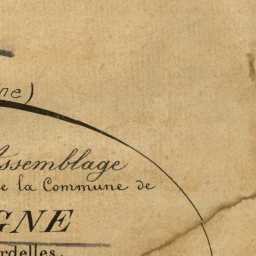 ne)
Assemblage
de la Commune de
GNE
rdelles.